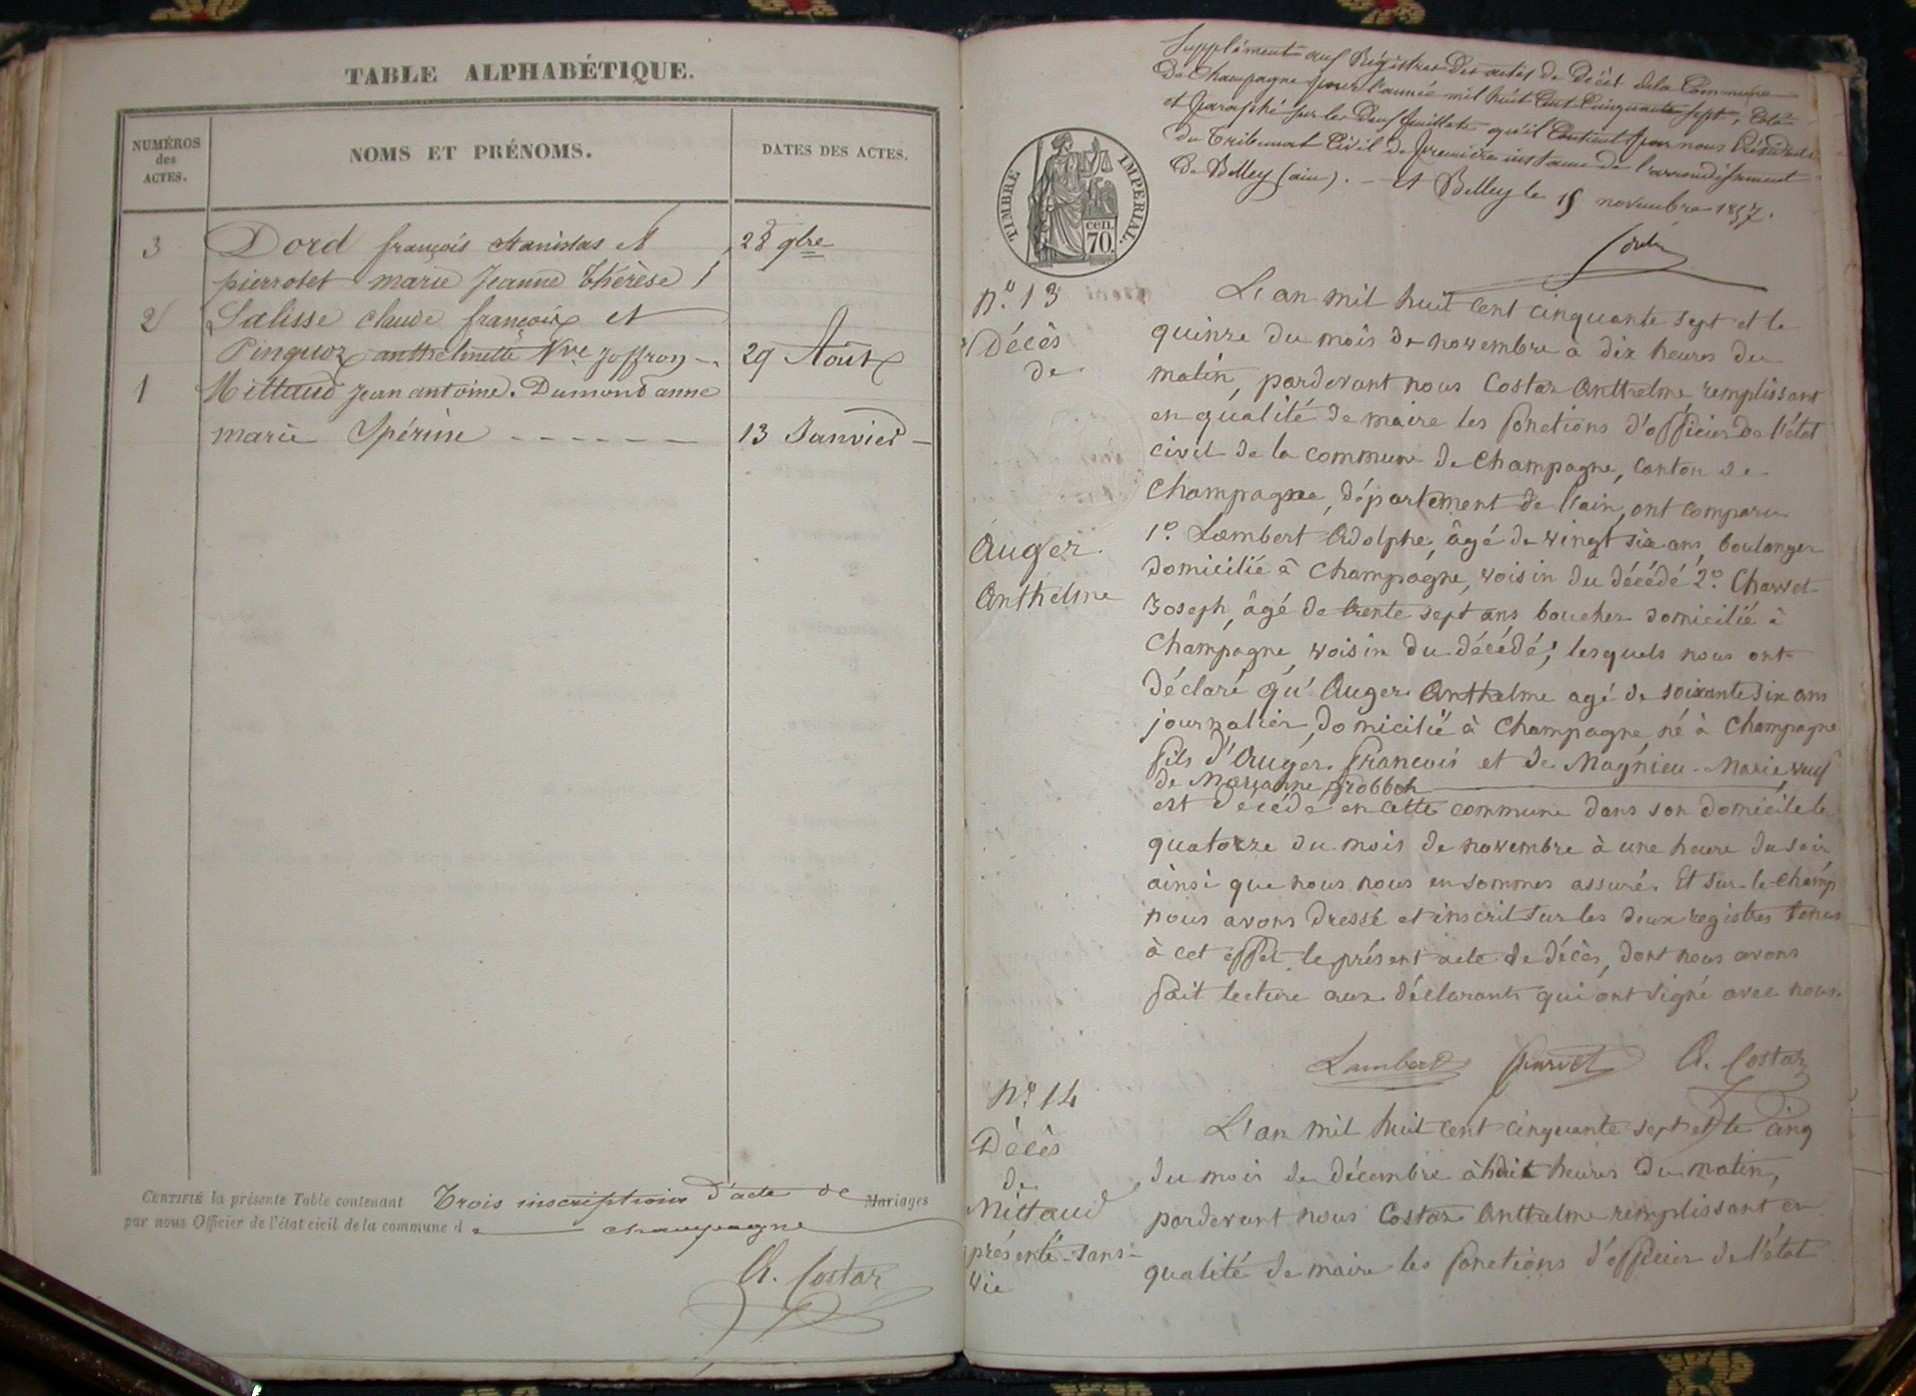 TABLE ALPHABÉTIQUE.
NUMÉROS
des
ACTES.
NOMS ET PRÉNOMS.
DATES DES ACTES.
3 Dord françois Stanislas et 28 9bre
pierrotet marie Jeanne Thérèse
2 Salisse claude françois et
Pinquoz anthelmette Vve Joffroy 29 Août
1 Mittaud Jean antoine. Dumond anne
marie Spérine - - - - - - 13 Janvier
CERTIFIÉ la présente Table contenant Trois inscriptions d'acte de Mariages
par nous Officier de l'état civil de la commune de champagne
A. Costaz
Supplément aux Régistres des actes de Décès de la Commune
De Champagne pour l'année mil huit Cent Cinquante sept, Coté
et paraphé sur les Deux feuillets qu'il Contient par nous Président
du Tribunal Civil de première instance de l'arrondissement
De Belley (ain). - A Belley le 15 novembre 1857.
TIMBRE IMPERIAL.
70 cen.
N.º 13
Décès
de
Auger
Anthelme
L'an mil huit cent cinquante sept et le
quinze du mois de novembre à dix heures du
matin, pardevant nous Costaz Anthelme, remplissant
en qualité de maire les fonctions d'officier de l'état
civil de la commune de Champagne, canton de
Champagne, département de l'ain, ont comparu
1º Lambert Adolphe, âgé de vingt six ans, boulanger
domicilié à Champagne, voisin du décédé 2º Charvet
Joseph, âgé de trente sept ans boucher domicilié à
Champagne, voisin du décédé; lesquels nous ont
déclaré qu'Auger Anthelme agé de soixante six ans
journalier, domicilié à Champagne, né à Champagne
fils d'Auger François et de Magnieu Marie veuf
de Marianne Grobboh
est décédé en cette commune dans son domicile le
quatorze du mois de novembre à une heure du soir
ainsi que nous nous en sommes assuré. Et sur-le-champ
nous avons dressé et inscrit sur les deux registres tenus
à cet effet le présent acte de décès, dont nous avons
fait lecture aux déclarants qui ont signé avec nous.
Lambert Charvet A. Costaz
N.º 14
Décès
de
Mittaud
présenté sans
vie
L'an mil huit cent cinquante sept et le cinq
du mois de décembre à huit heures du matin,
pardevant nous Costaz Anthelme remplissant en
qualité de maire les fonctions d'officier de l'état